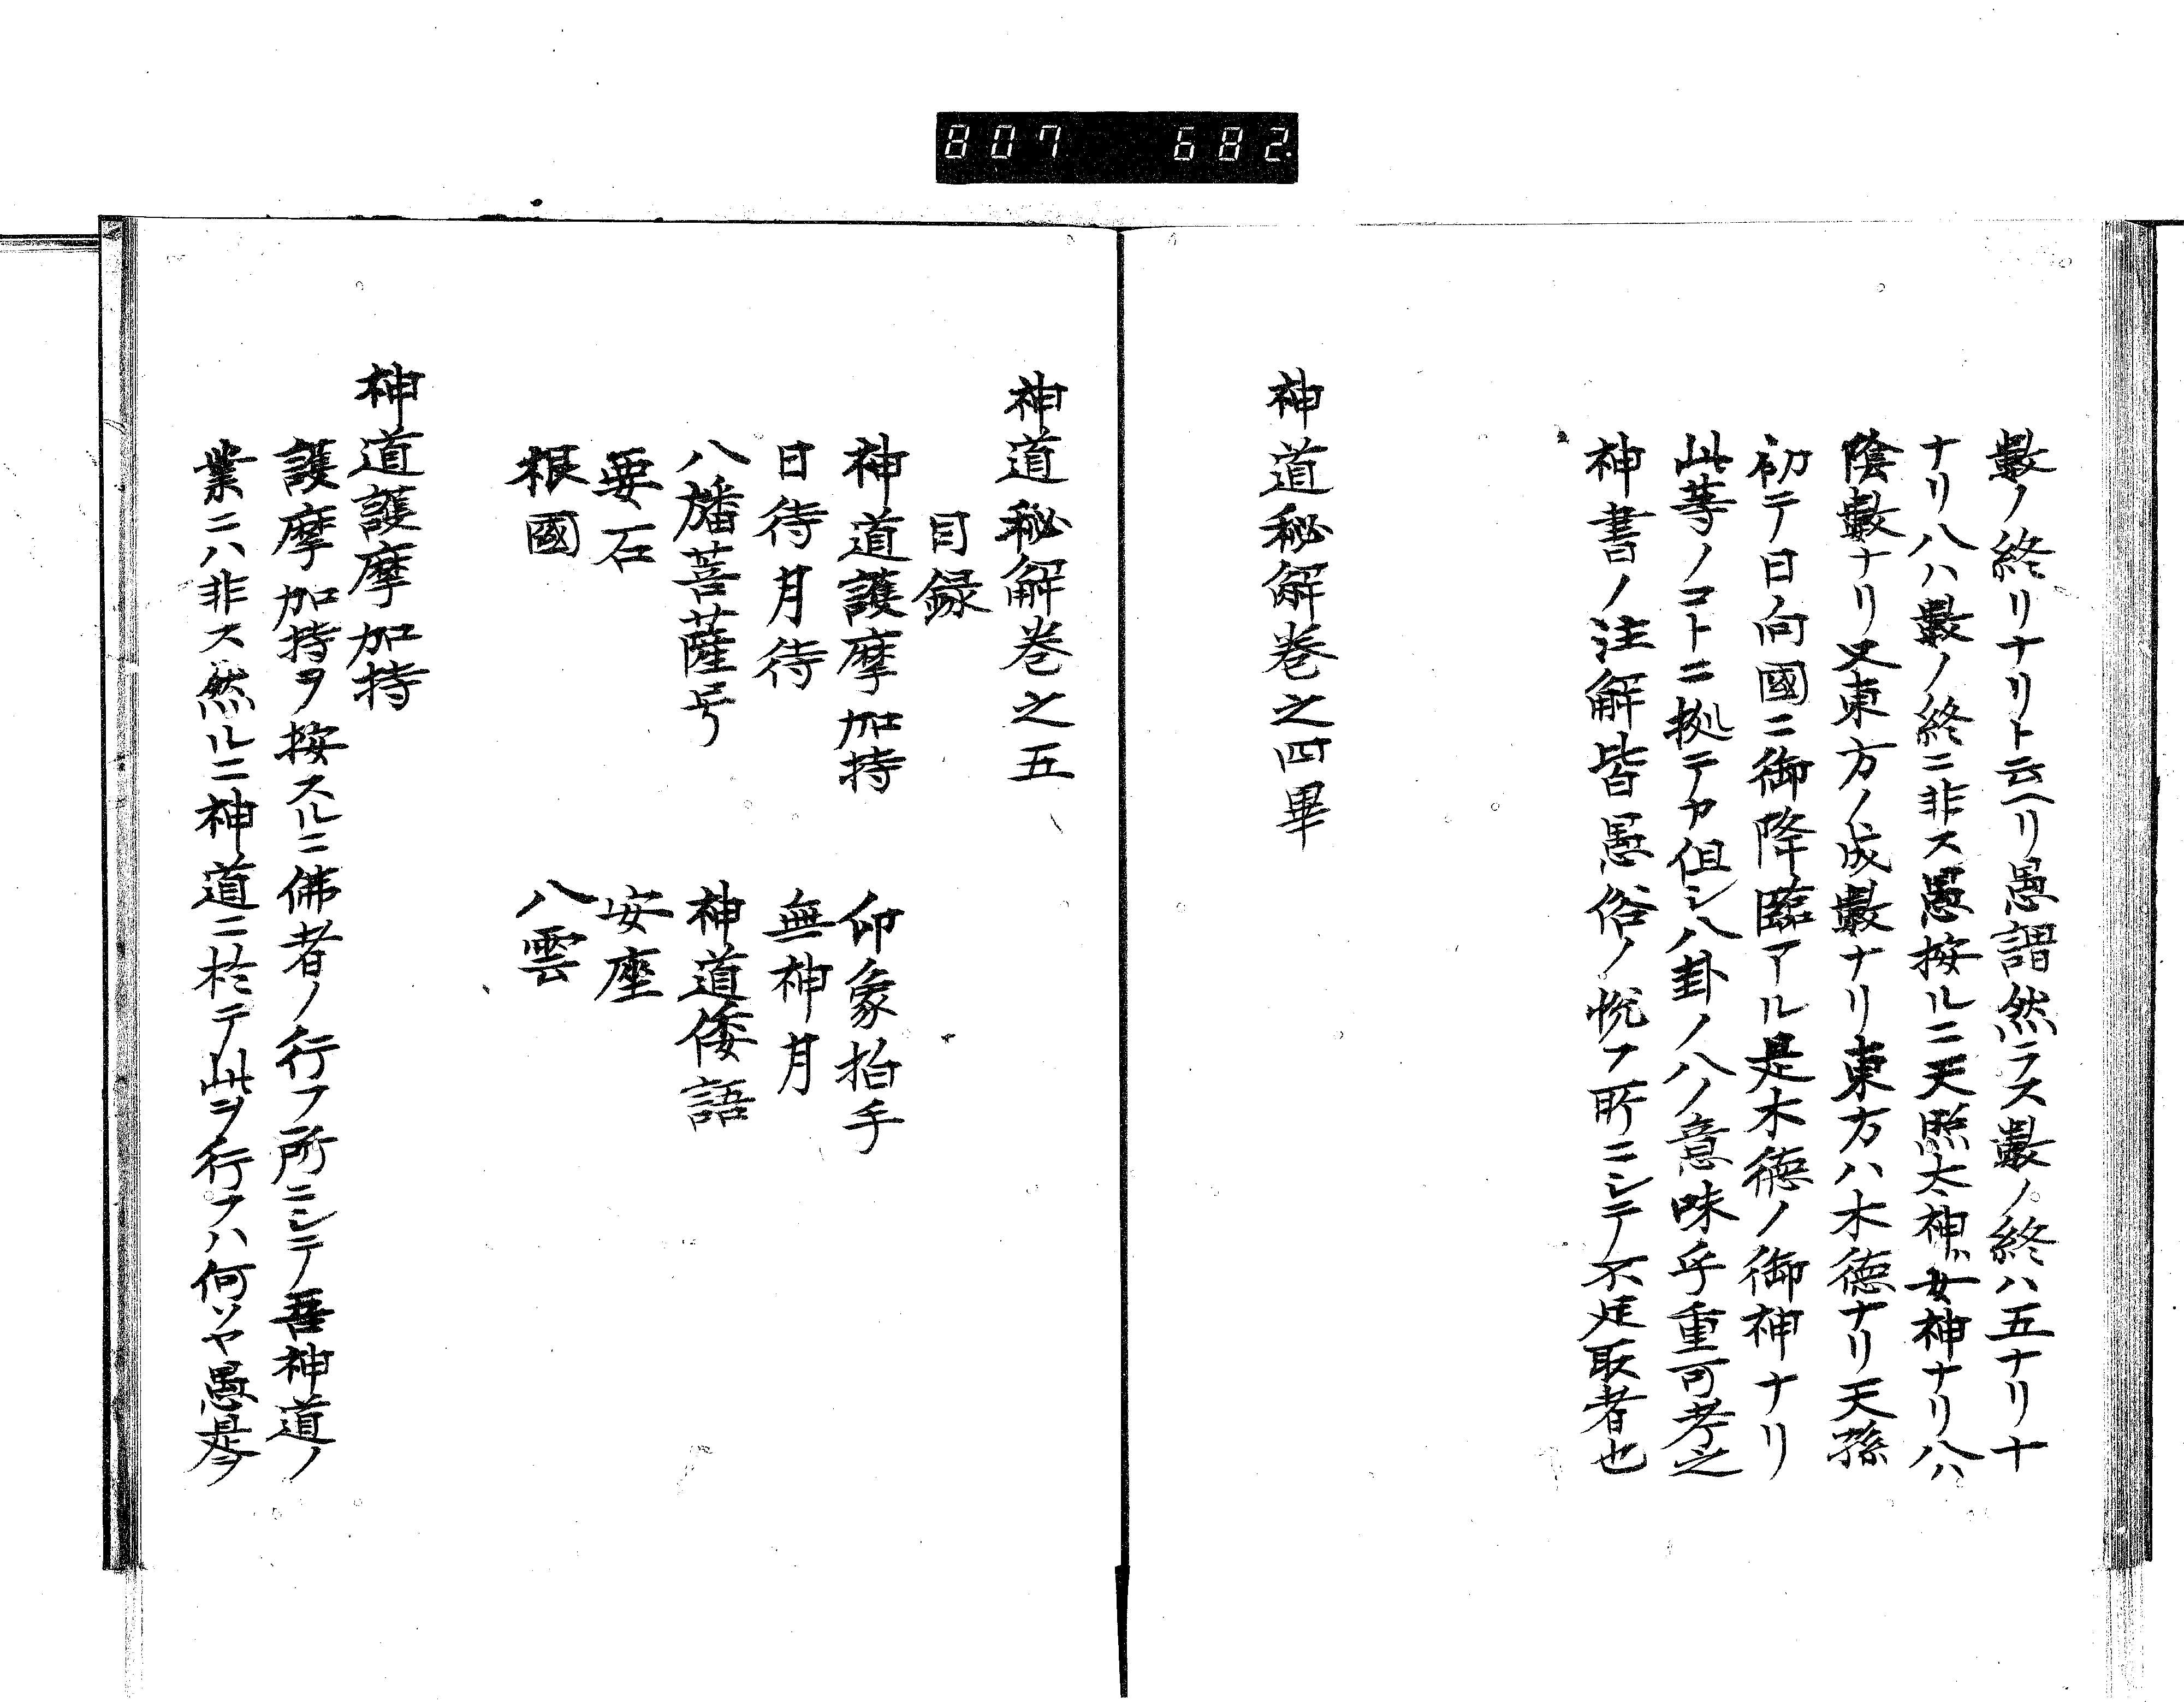 807 682
數ノ終リナリト云ヘリ愚謂然ラス數ノ終ハ五ナリ十
ナリ八ハ數ノ終ニ非ス愚按ルニ天照太神ハ女神ナリ八ハ
陰數ナリ又東方ノ成數ナリ東方ハ木德ナリ天孫
初テ日向國ニ御降臨アル是木德ノ御神ナリ
此等ノコトニ拠テヤ但シ八卦ノ八ノ意味乎重可考之
神書ノ注解皆愚俗ノ悦フ所ニシテ不足取者也
神道秘解巻之四畢
神道秘解巻之五
目録
神道護摩加持 印象拍手
日待月待 無神月
八幡菩薩号 神道倭語
要石 安座
根國 八雲
神道護摩加持
護摩加持ヲ按スルニ佛者ノ行フ所ニシテ吾神道ノ
業ニハ非ス然ルニ神道ニ於テ此ヲ行フハ何ソヤ愚是ヲ